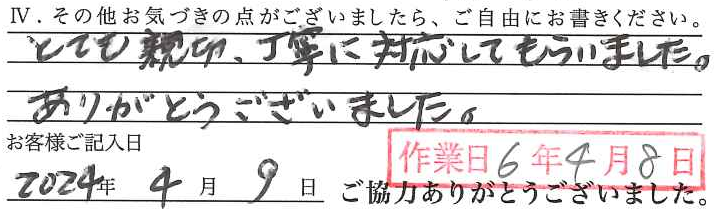 Ⅳ.その他お気づきの点がございましたら、ご自由にお書きください。
とても親切、丁寧に対応してもらいました。
ありがとうございました。
お客様ご記入日
作業日6年4月8日
2024年 4月 9日 ご協力ありがとうございました。